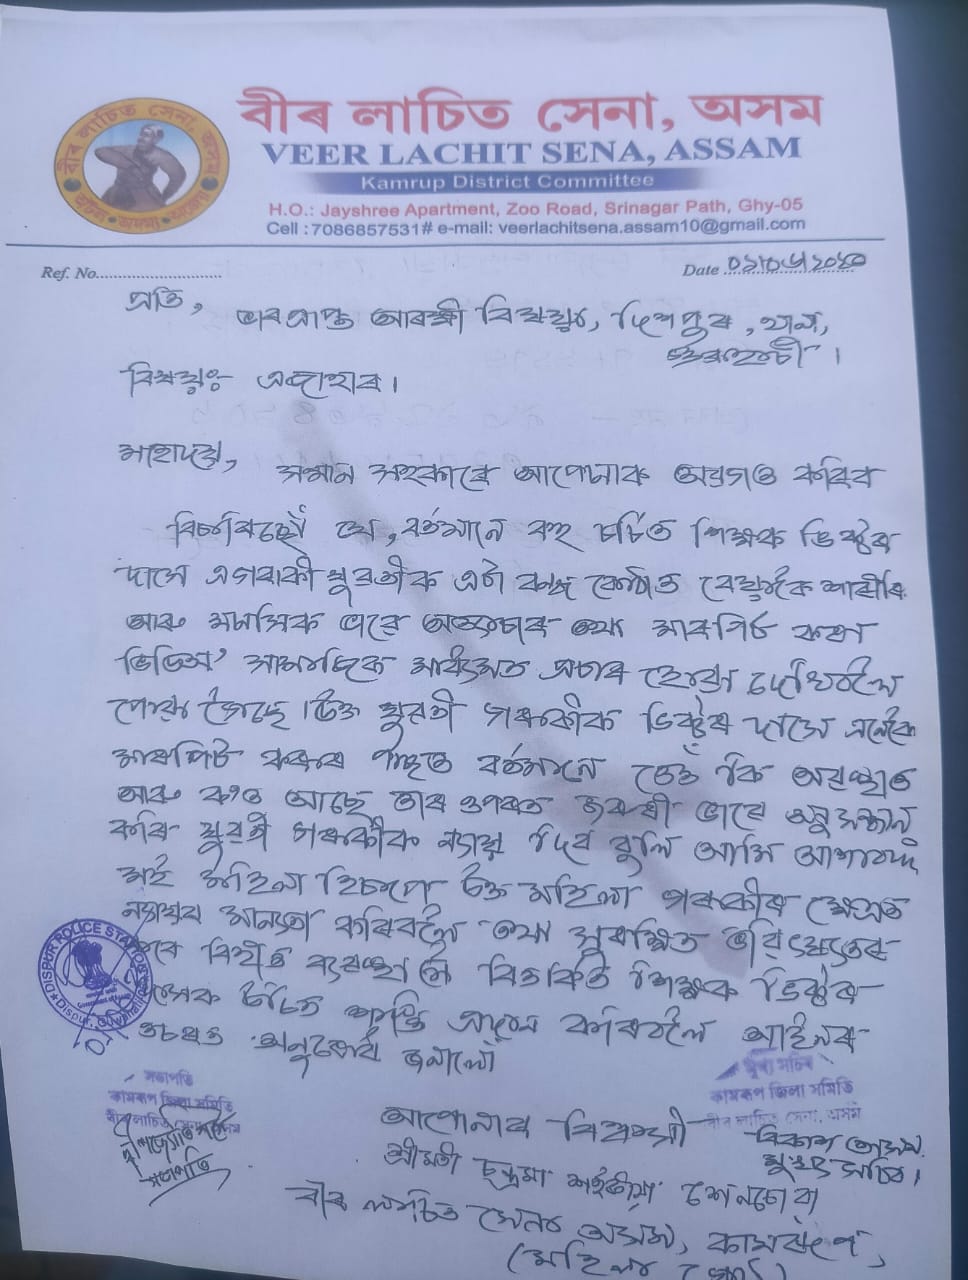 বীৰ লাচিত সেনা, অসম
VEER LACHIT SENA, ASSAM
Kamrup District Committee
H.O.: Jayshree Apartment, Zoo Road, Srinagar Path, Ghy-05
Cell :7086857531# e-mail: veerlachitsena.assam10@gmail.com
বীৰ লাচিত সেনা, অসম
Ref. No.............................
Date
প্ৰতি,
ভাৰপ্ৰাপ্ত আৰক্ষী বিষয়া, দিশপুৰ, থানা,
বিষয়ঃ এজাহাৰ।
মহোদয়,
সন্মান সহকাৰে আপোনাক অৱগত কৰিব
বিচাৰিছোঁ যে, বৰ্তমানে বহু চৰ্চিত শিক্ষক ভিক্টৰ
দাসে এগৰাকী যুৱতীক এটা বন্ধ কোঠাত বেয়াকৈ
আৰু মানসিক ভাৱে অত্যাচাৰ তথা মাৰপিট কৰা
ভিডিঅ' সামাজিক মাধ্যমত প্ৰচাৰ হোৱা দেখিবলৈ
পোৱা গৈছে। উক্ত যুৱতী গৰাকীক ভিক্টৰ দাসে এনেকৈ
মাৰপিট কৰাৰ পাছত বৰ্তমানে তেওঁ কি অৱস্থাত
আৰু ক'ত আছে তাৰ ওপৰত জৰুৰী ভাৱে অনুসন্ধান
কৰি যুৱতী গৰাকীক ন্যায় দিব বুলি আমি আশাবাদী
মই মহিলা হিচাপে উক্ত মহিলা গৰাকীৰ ক্ষেত্ৰত
কৰিবলৈ তথা সুৰক্ষিত ভৱিষ্যতৰ
বাবে বিহিত ব্যৱস্থা লৈ বিতৰ্কিত শিক্ষক ভিক্টৰ
দাসক উচিত শাস্তি প্ৰদান কৰিবলৈ আইনৰ
ওচৰত অনুৰোধ জনালোঁ
DISPUR POLICE STATION
Dispur, Guwahati
সভাপতি
কামৰূপ জিলা সমিতি
বীৰ লাচিত সেনা, অসম
সভাপতি
মুখ্য সচিব
কামৰূপ জিলা সমিতি
বীৰ লাচিত সেনা, অসম
মুখ্য সচিব।
আপোনাৰ বিশ্বাসী
শ্ৰীমতী চন্দ্ৰমা শইকীয়া
বীৰ লাচিত সেনা অসম, কামৰূপ,